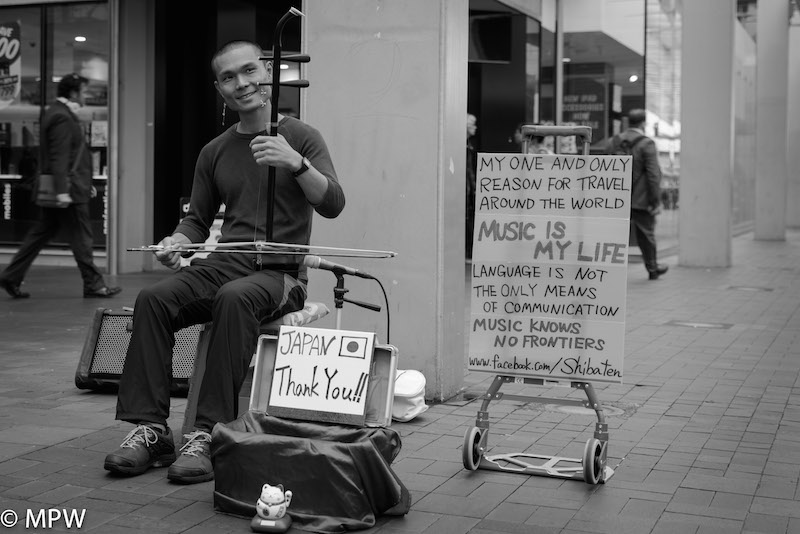 MY ONE AND ONLY
REASON FOR TRAVEL
AROUND THE WORLD
MUSIC IS
MY LIFE
LANGUAGE IS NOT
THE ONLY MEANS
OF COMMUNICATION
MUSIC KNOWS
NO FRONTIERS
www.facebook.com/Shibaten
JAPAN
Thank You!!
mobiles
© MPW